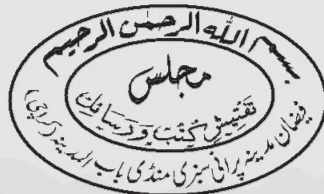 بسم الله الرحمن الرحيم
مجلس
تفتیشِ کُتُب و رَسائِل
فیضانِ مدینہ پرانی سبزی منڈی باب المدینہ (کراچی)